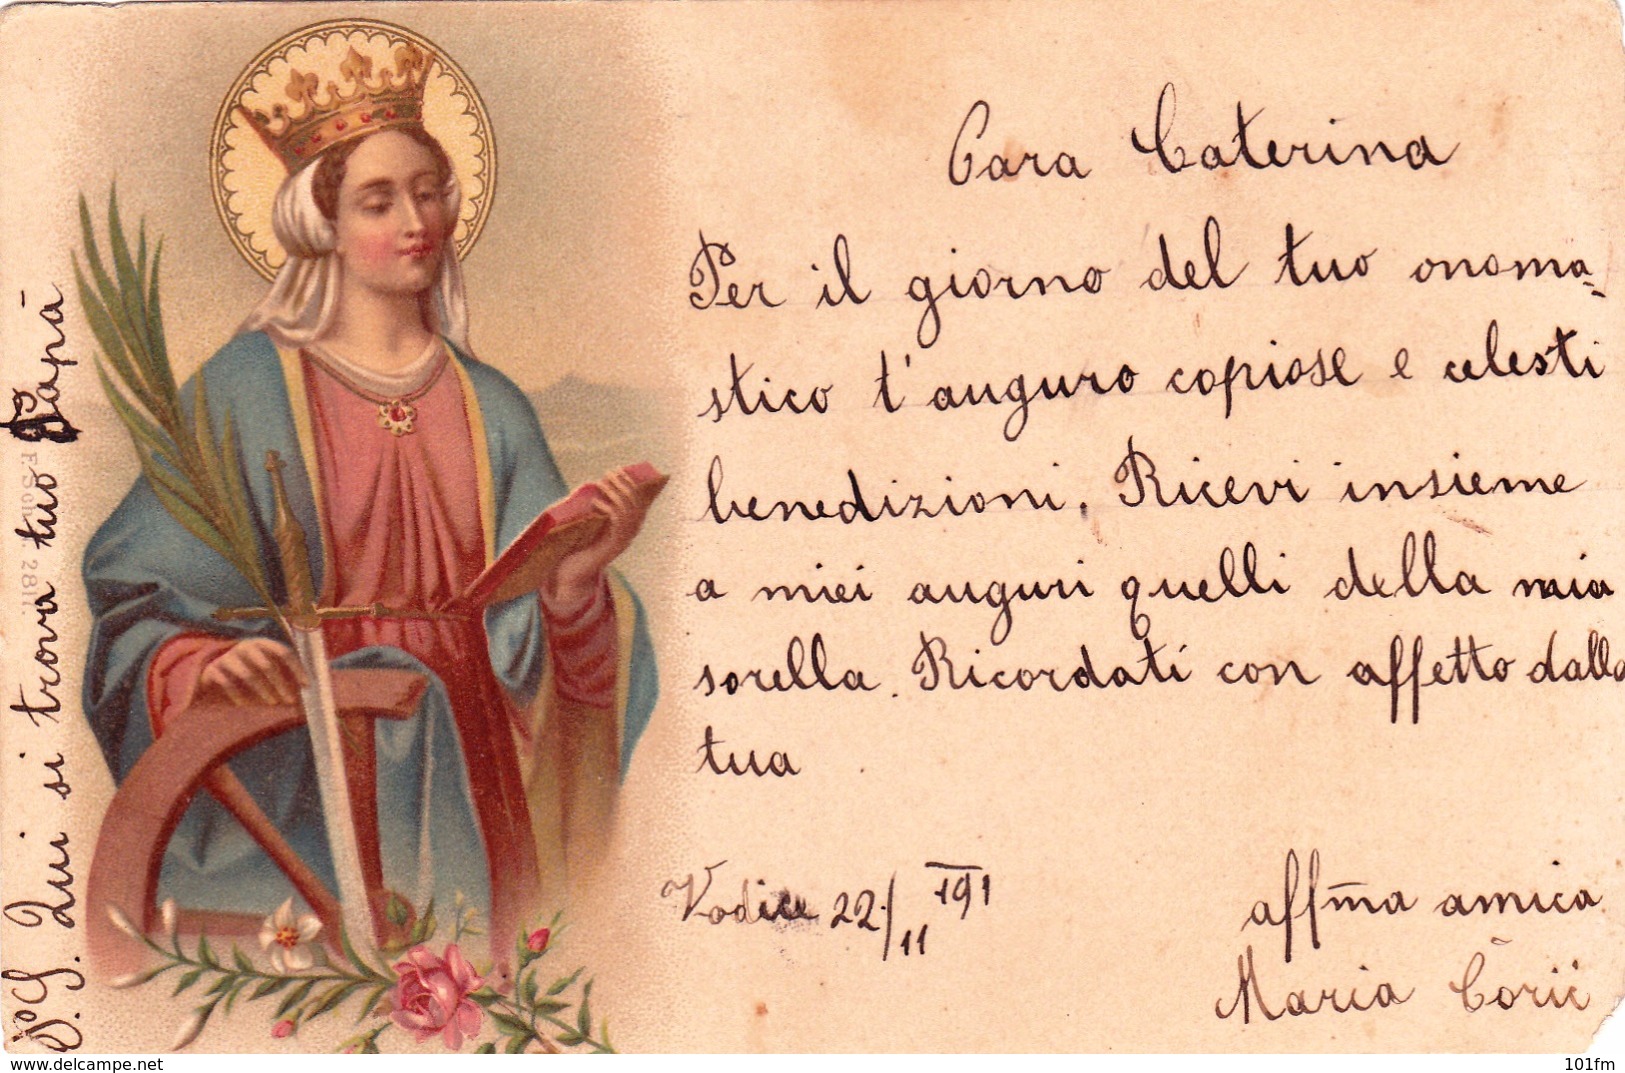 Cara Caterina
Per il giorno del tuo onoma=
stico t'auguro copiose e celesti
benedizioni. Ricevi insieme
a miei auguri quelli della mia
sorella. Ricordati con affetto dalla
tua
Vodice 22/11 191
affma amica
Maria Corić
P.S. Qui si trova tuo Papà
28
delcampe.net
101fm